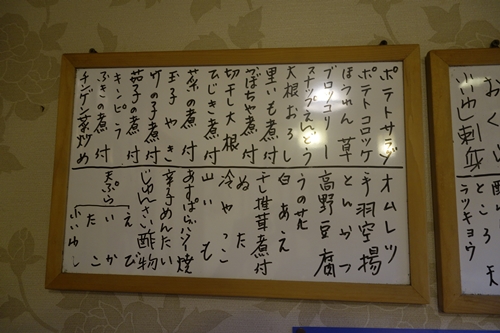 ポテトサラダ
ポテトコロッケ
ほうれん草
ブロッコリー
スナップえんどう
大根おろし
里いも煮付
かぼちゃ煮付
切干し大根
ひじき煮付
菜の煮付
玉子やき
竹の子煮付
茄子の煮付
キンピラ
ふきの煮付
チンゲン菜炒め
オムレツ
手羽空揚
とんかつ
高野豆腐
うのはな
白あえ
干し椎茸煮付
ぬた
冷やっこ
山いも
あすぱらバター焼
辛子めんたい
じゅんさい酢物
天ぷら
えび
いか
たこ
小いわし
小いわし刺身
ところ天
ラッキョウ